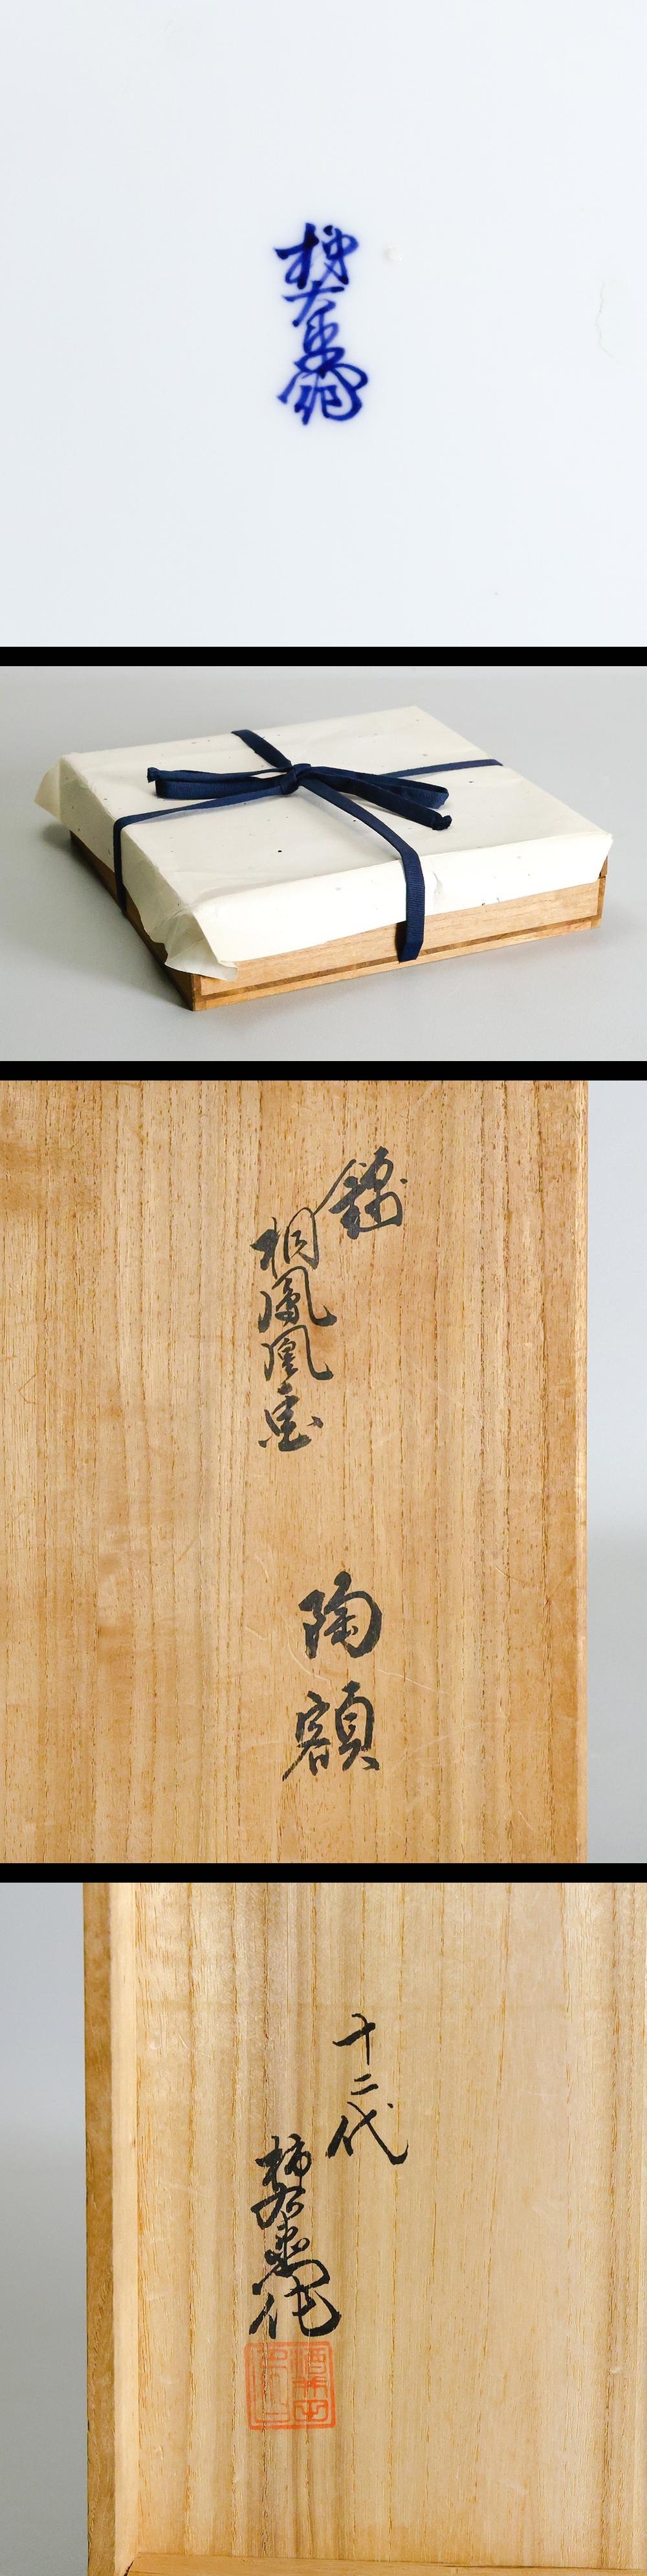 柿右衛門
錦
桐鳳凰画
陶額
十二代
柿右衛門作